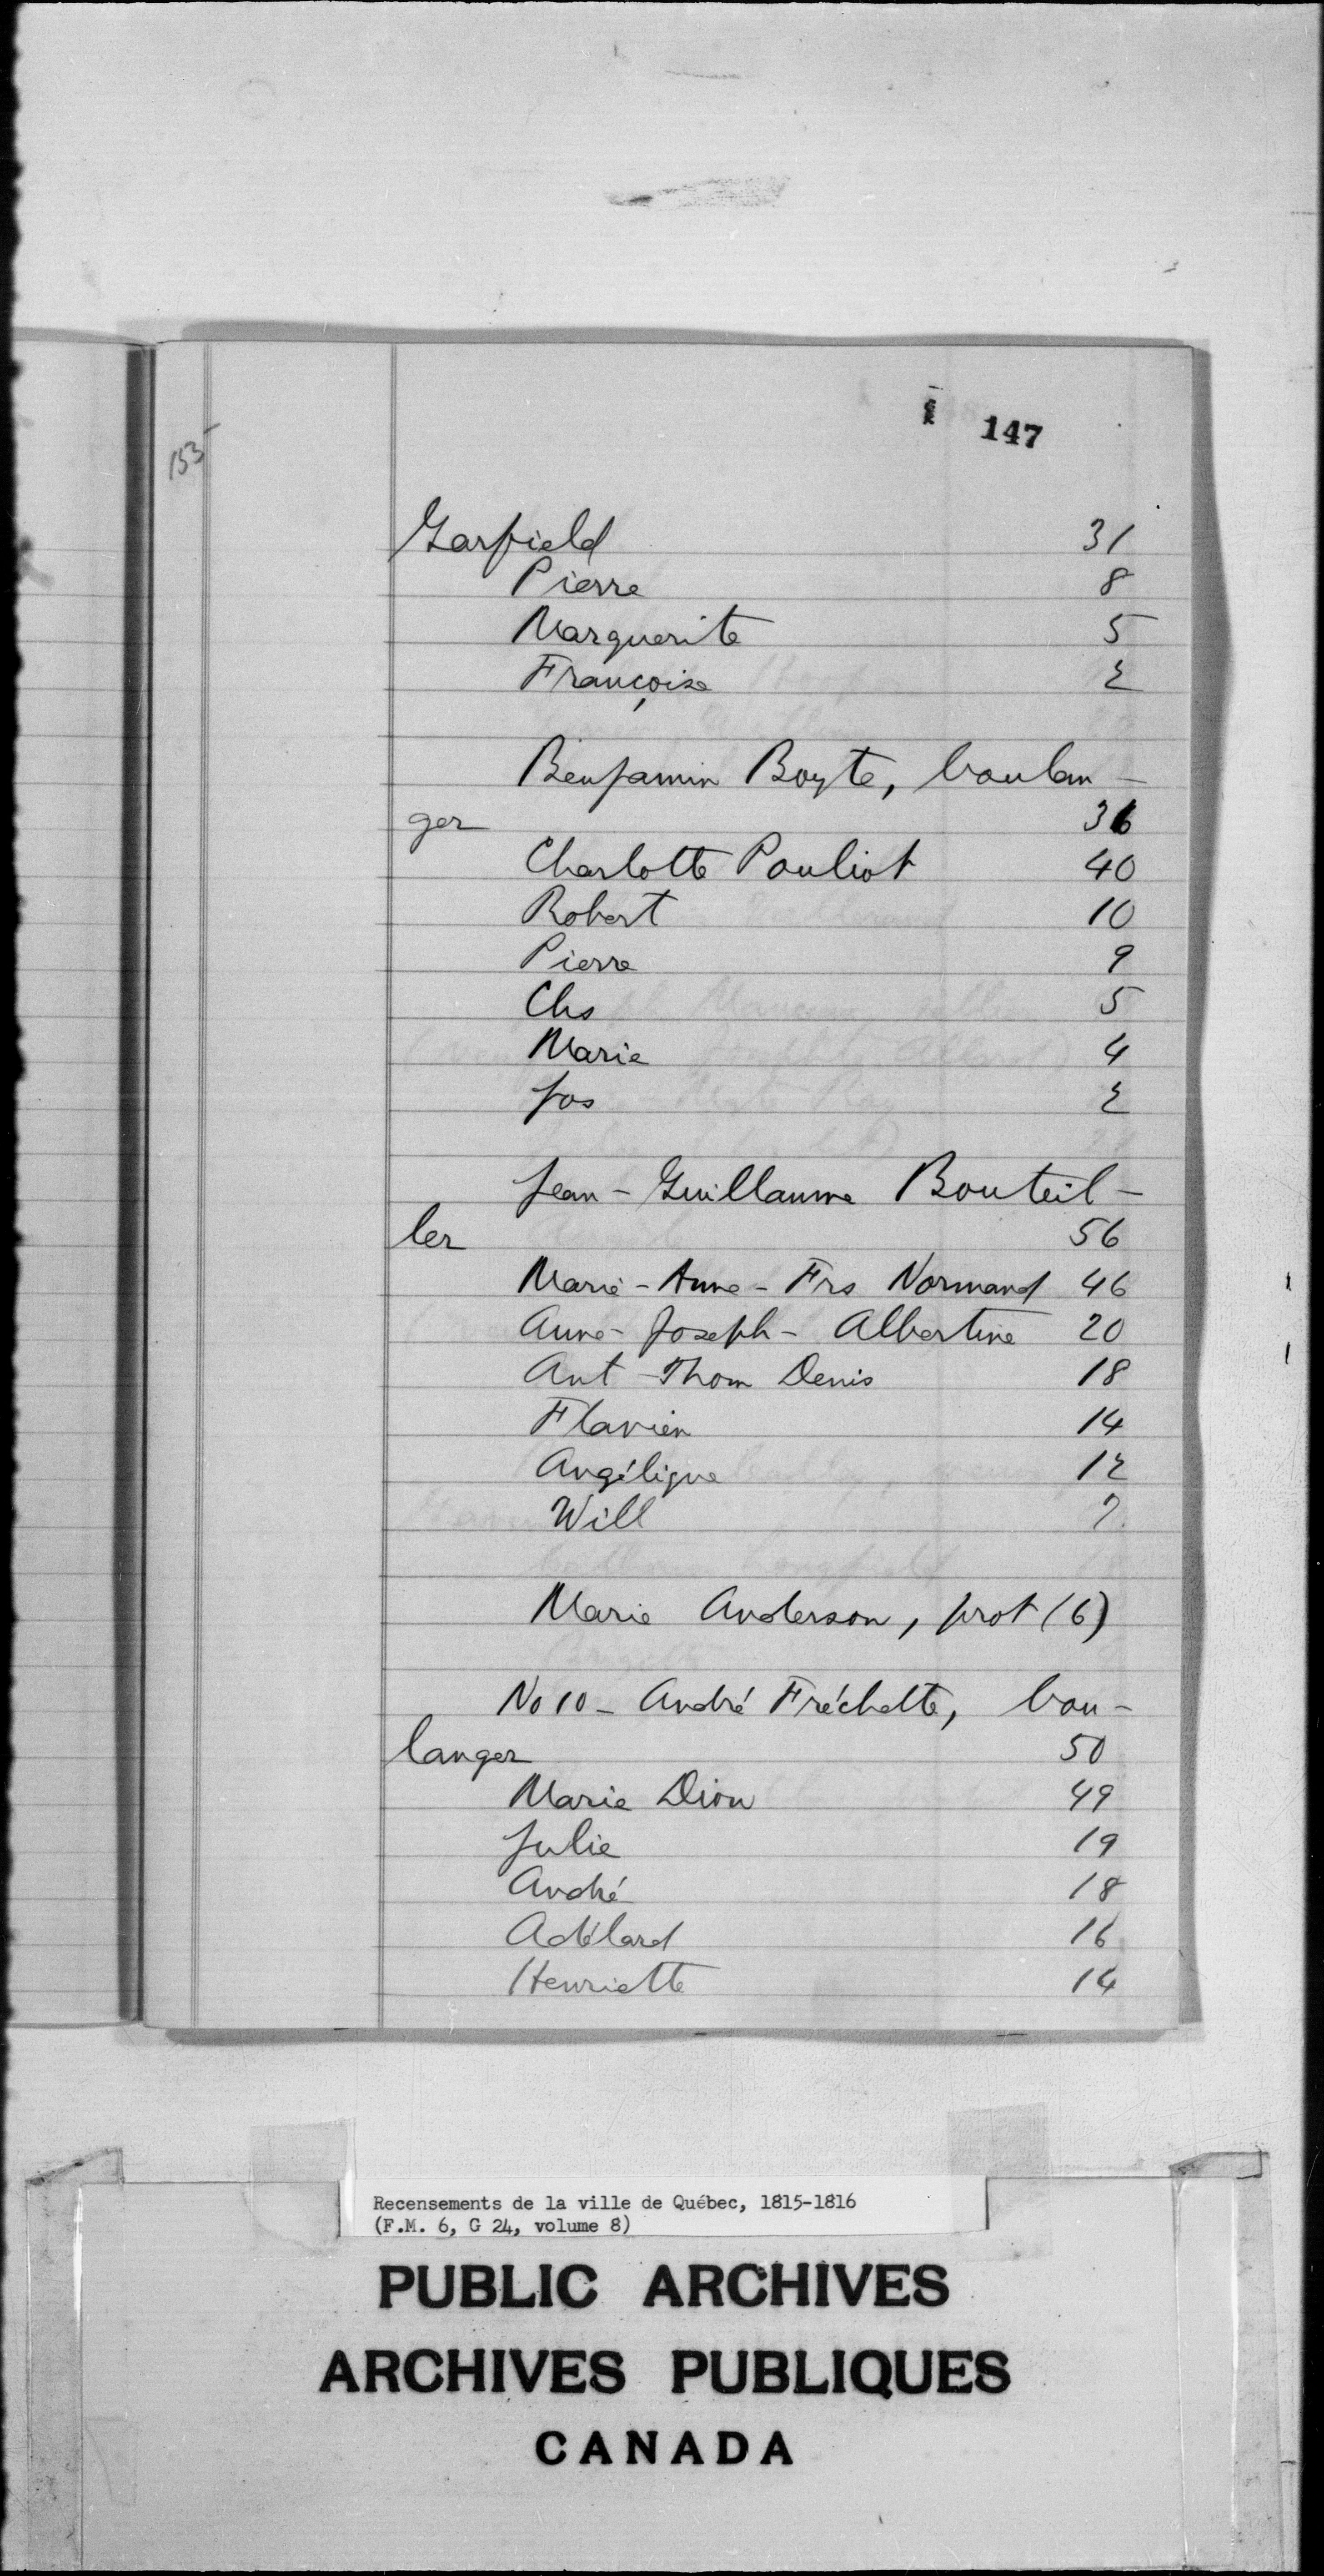 147
153
Garfield 31
Pierre 8
Marguerite 5
Françoise 2
Benjamin Boyte, boulan-
ger 36
Charlotte Pouliot 40
Robert 10
Pierre 9
Chs 5
Marie 4
Jos 2
Jean-Guillaume Bouteil-
ler 56
Marie-Anne-Frs Normand 46
Anne-Joseph-Albertine 20
Ant-Thom Denis 18
Flavien 14
Angélique 12
Will 7
Marie Anderson, prot (6)
No 10 - André Fréchette, bou-
langer 50
Marie Dion 49
Julie 19
André 18
Adélard 16
Henriette 14
Recensements de la ville de Québec, 1815-1816
(F.M. 6, G 24, volume 8)
PUBLIC ARCHIVES
ARCHIVES PUBLIQUES
CANADA